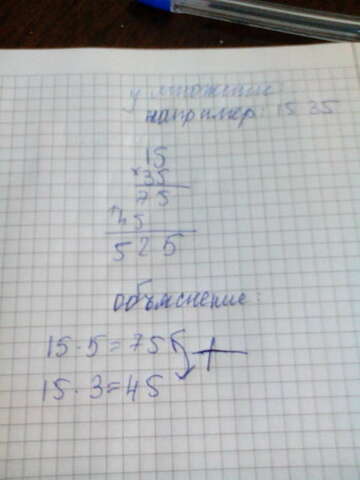 умножение
например: 15 35
15
×35
75
+45
525
объяснение:
15·5=75
15·3=45 +